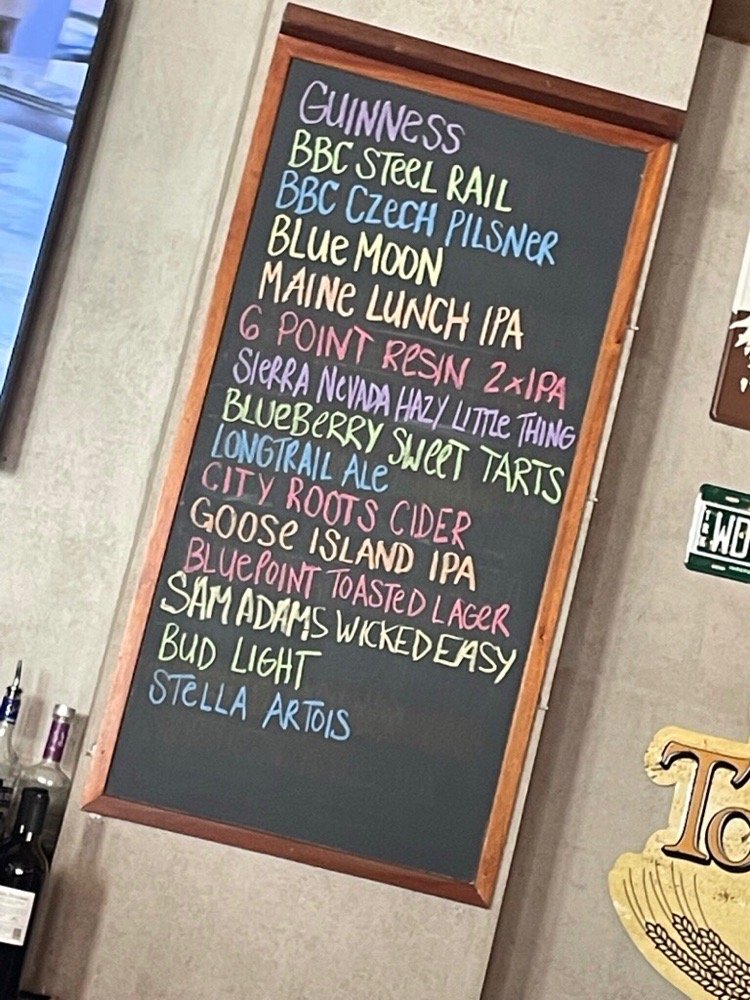 GUINNESS
BBC STEEL RAIL
BBC CZECH PILSNER
BLUE MOON
MAINE LUNCH IPA
6 POINT RESIN 2xIPA
SIERRA NEVADA HAZY LITTLE THING
BLUEBERRY SWEET TARTS
LONGTRAIL ALE
CITY ROOTS CIDER
GOOSE ISLAND IPA
BLUEPOINT TOASTED LAGER
SAM ADAMS WICKED EASY
BUD LIGHT
STELLA ARTOIS